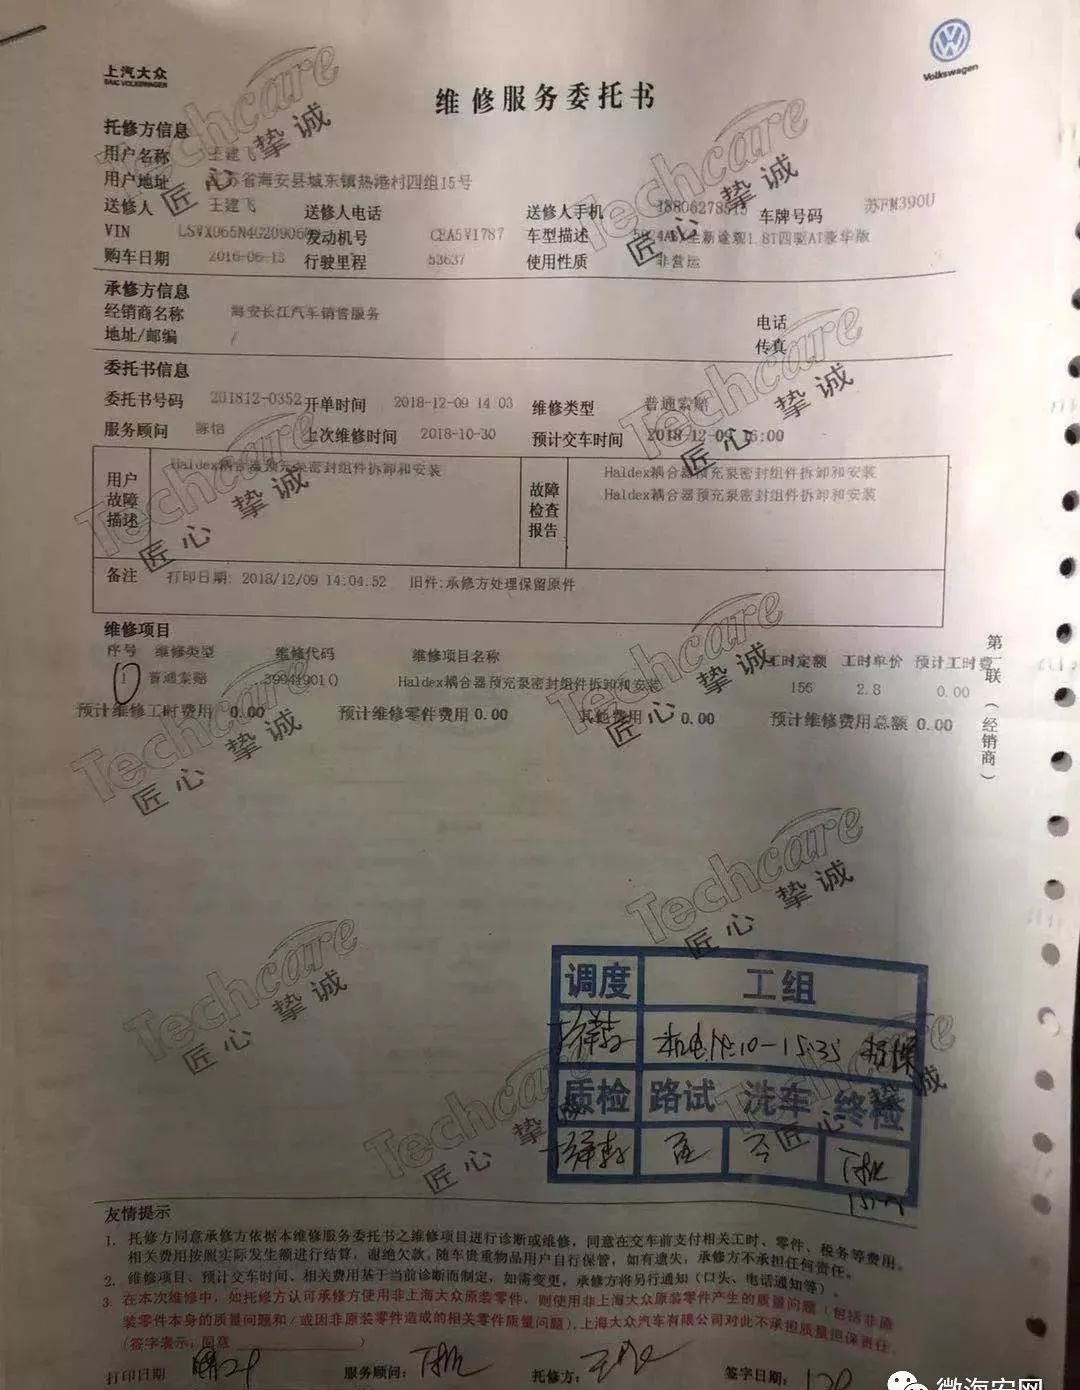 上汽大众
SAIC VOLKSWAGEN
Volkswagen
维修服务委托书
托修方信息
用户名称 王建飞
用户地址 苏省海安县城东镇热港村四组15号
送修人 王建飞 送修人电话 送修人手机 车牌号码 苏FM390U
VIN 发动机号 车型描述 全新途观1.8T四驱AT豪华版
购车日期 2016-06-13 行驶里程 53637 使用性质 非营运
承修方信息
经销商名称 海安长江汽车销售服务
电话
地址/邮编 /
传真
委托书信息
委托书号码 201812-0352 开单时间 2018-12-09 14 03 维修类型 普通索赔
服务顾问 陈怡 上次维修时间 2018-10-30 预计交车时间 2018-12-09 16:00
用户故障描述 Haldex耦合器预充泵密封组件拆卸和安装
故障检查报告 Haldex耦合器预充泵密封组件拆卸和安装
Haldex耦合器预充泵密封组件拆卸和安装
备注 打印日期: 2018/12/09 14:04:52 旧件:承修方处理保留原件
维修项目
序号 维修类型 维修代码 维修项目名称 工时定额 工时单价 预计工时费
1 普通索赔 Haldex耦合器预充泵密封组件拆卸和安装 156 2.8 0.00
预计维修工时费用 0.00 预计维修零件费用 0.00 其他费用 0.00 预计维修费用总额 0.00
第一联(经销商)
调度 工组
15:35
质检 路试 洗车 终检
友情提示
1. 托修方同意承修方依据本维修服务委托书之维修项目进行诊断或维修,同意在交车前支付相关工时、零件、税务等费用。
相关费用按照实际发生额进行结算,谢绝欠款,随车贵重物品用户自行保管,如有遗失,承修方不承担任何责任。
2. 维修项目、预计交车时间、相关费用基于当前诊断而制定,如需变更,承修方将另行通知(口头、电话通知等)。
3. 在本次维修中,如托修方认可承修方使用非上海大众原装零件,则使用非上海大众原装零件产生的质量问题(包括非原
装零件本身的质量问题和/或因非原装零件造成的相关零件质量问题),上海大众汽车有限公司对此不承担质量担保责任
(签字表示:同意 )
打印日期 服务顾问: 托修方: 签字日期:
Techcare
匠心 挚诚
微海安网